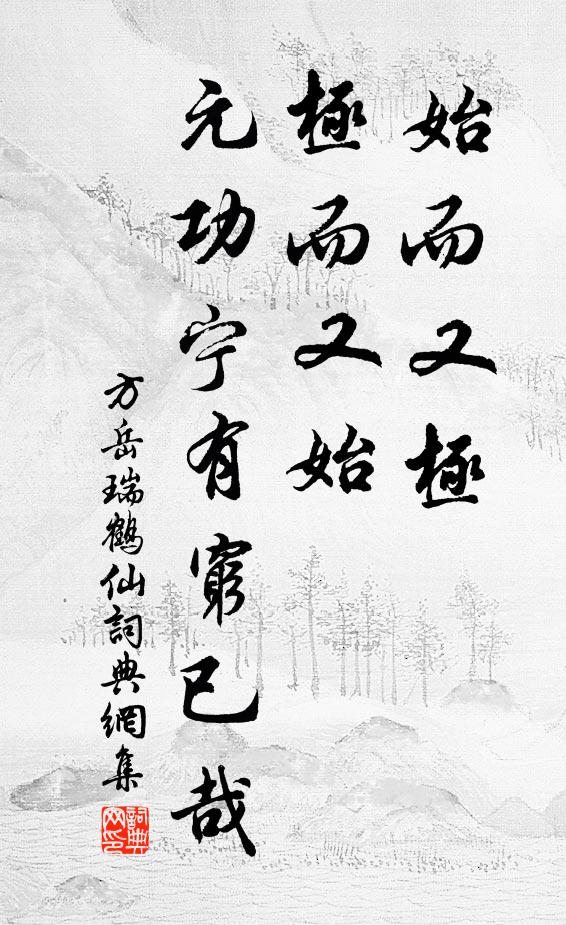 始而又極
極而又始
元功宁有窮已哉
方岳瑞鶴仙詞典網集
詞典
网印